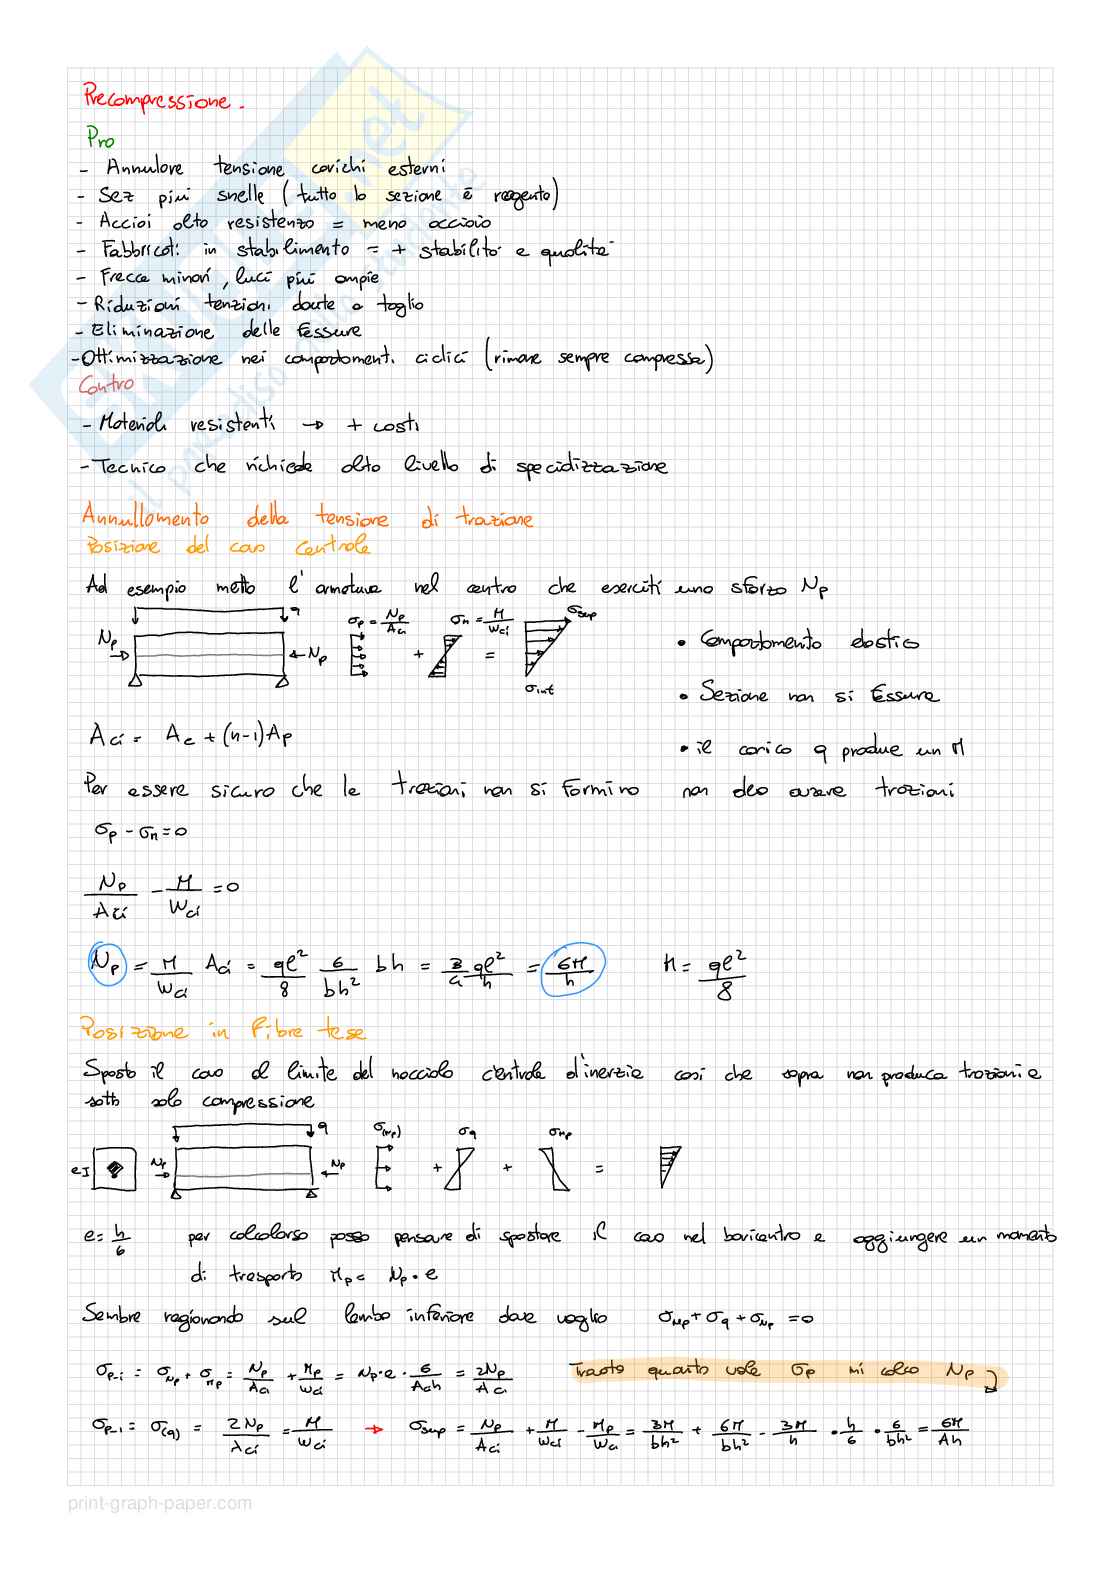 Precompressione.
Pro
- Annulare tensione carichi esterni
- Sez più snelle (tutta la sezione è reagente)
- Acciai alta resistenza = meno acciaio
- Fabbricati in stabilimento = + stabilità e qualità
- Frecce minori, luci più ampie
- Riduzioni tenzioni dovute a taglio
- Eliminazione delle fessure
- Ottimizzazione nei comportamenti ciclici (rimane sempre compressa)
Contro
- Materiali resistenti → + costi
- Tecnico che richiede alto livello di specializzazione
Annullamento della tensione di trazione
Posizione del cavo centrale
Ad esempio metto l'armatura nel centro che eserciti uno sforzo Np
q
Np
Np
σp = Np/Aci
+
σn = M/Wci
=
σsup
σinf
• Comportamento elastico
• Sezione non si fessura
• il carico q produce un M
Aci = Ac + (n-1)Ap
Per essere sicuro che le trazioni non si formino non devo avere trazioni
σp - σn = 0
Np/Aci - M/Wci = 0
Np = M/Wci Aci = ql²/8 6/bh² bh = 3/4 ql²/h = 6M/h
M = ql²/8
Posizione in fibre tese
Sposto il cavo al limite del nocciolo centrale d'inerzia così che sopra non produca trazioni e
sotto solo compressione
e
Np
q
Np
σ(Np)
+
σq
+
σMp
=
e = h/6 per calcolarso posso pensare di spostare il cavo nel baricentro e aggiungere un momento
di trasporto Mp = Np · e
Sempre ragionando sul lembo inferiore dove voglio σMp + σq + σNp = 0
σp-i = σNp + σMp = Np/Aci + Mp/Wci = Np·e · 6/Ach = 2Np/Aci
Trovato quanto vale σp mi calcolo Np
σp-i = σ(q) = 2Np/Aci = M/Wci → σsup = Np/Aci + M/Wci - Mp/Wci = 3M/bh² + 6M/bh² - 3M/h · h/6 · 6/bh² = 6M/Ah
print-graph-paper.com